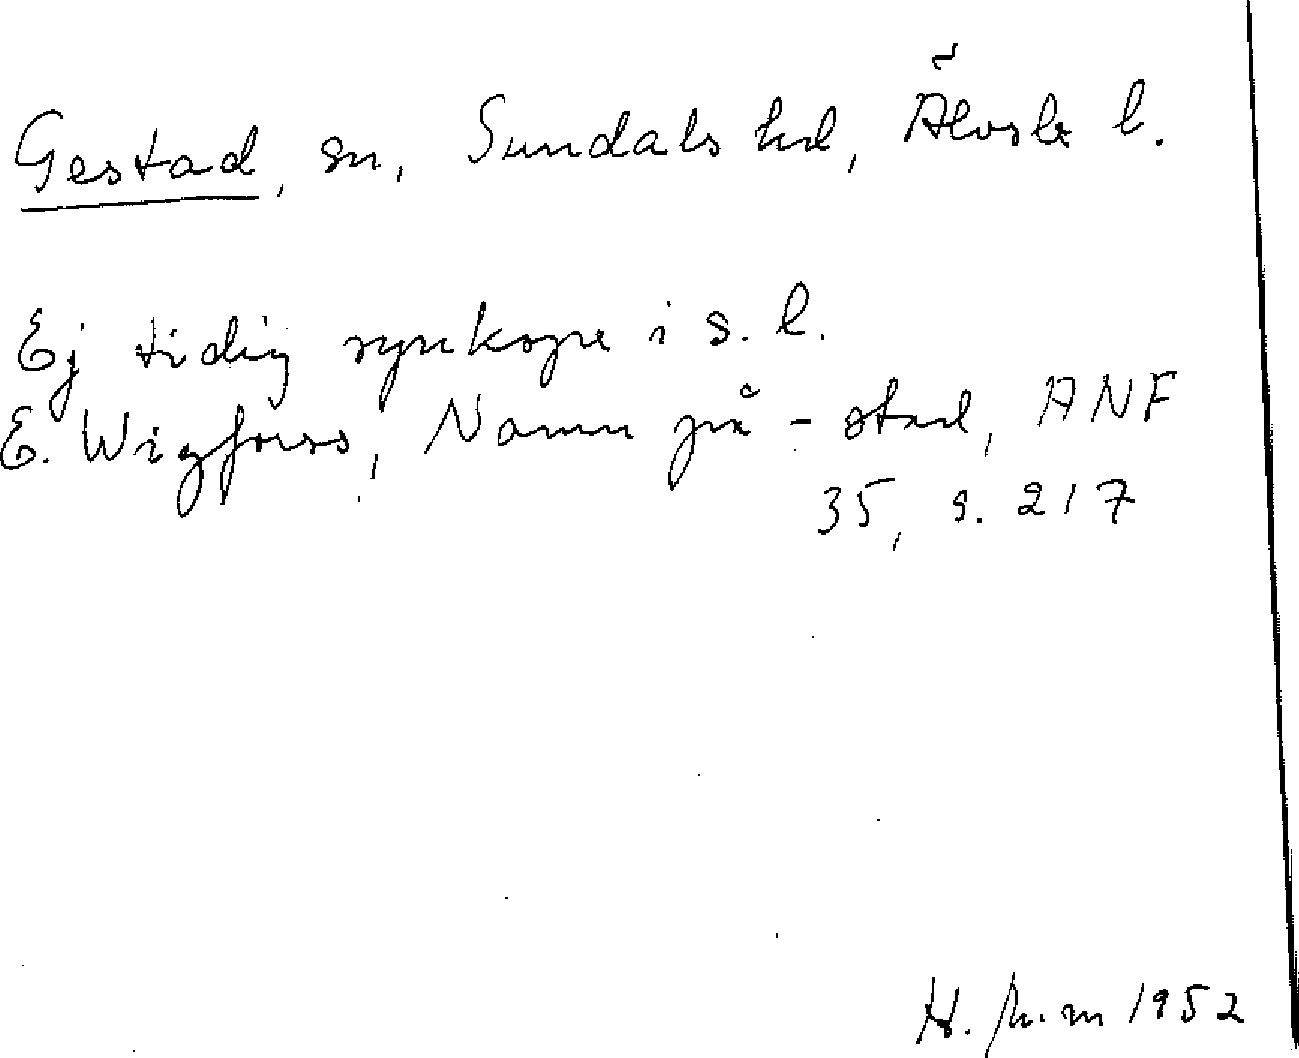 Gestad, sn, Sundals hd, Älvsb l.
Ej tidig synkope i s. l.
E. Wigforss, Namn på -stad, ANF
35, s. 217
H. 1952